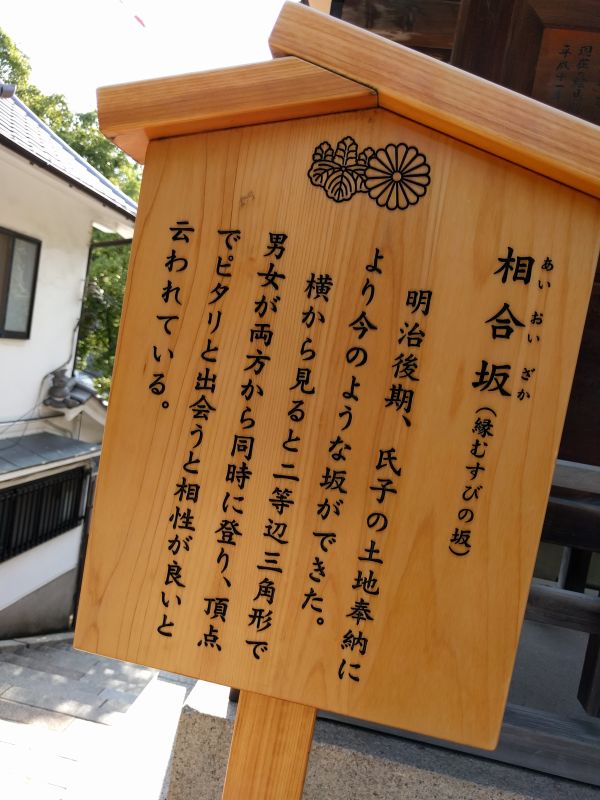 相合坂(縁むすびの坂)
あいおいざか
明治後期、氏子の土地奉納に
より今のような坂ができた。
横から見ると二等辺三角形で
男女が両方から同時に登り、頂点
でピタリと出会うと相性が良いと
云われている。
平成十一